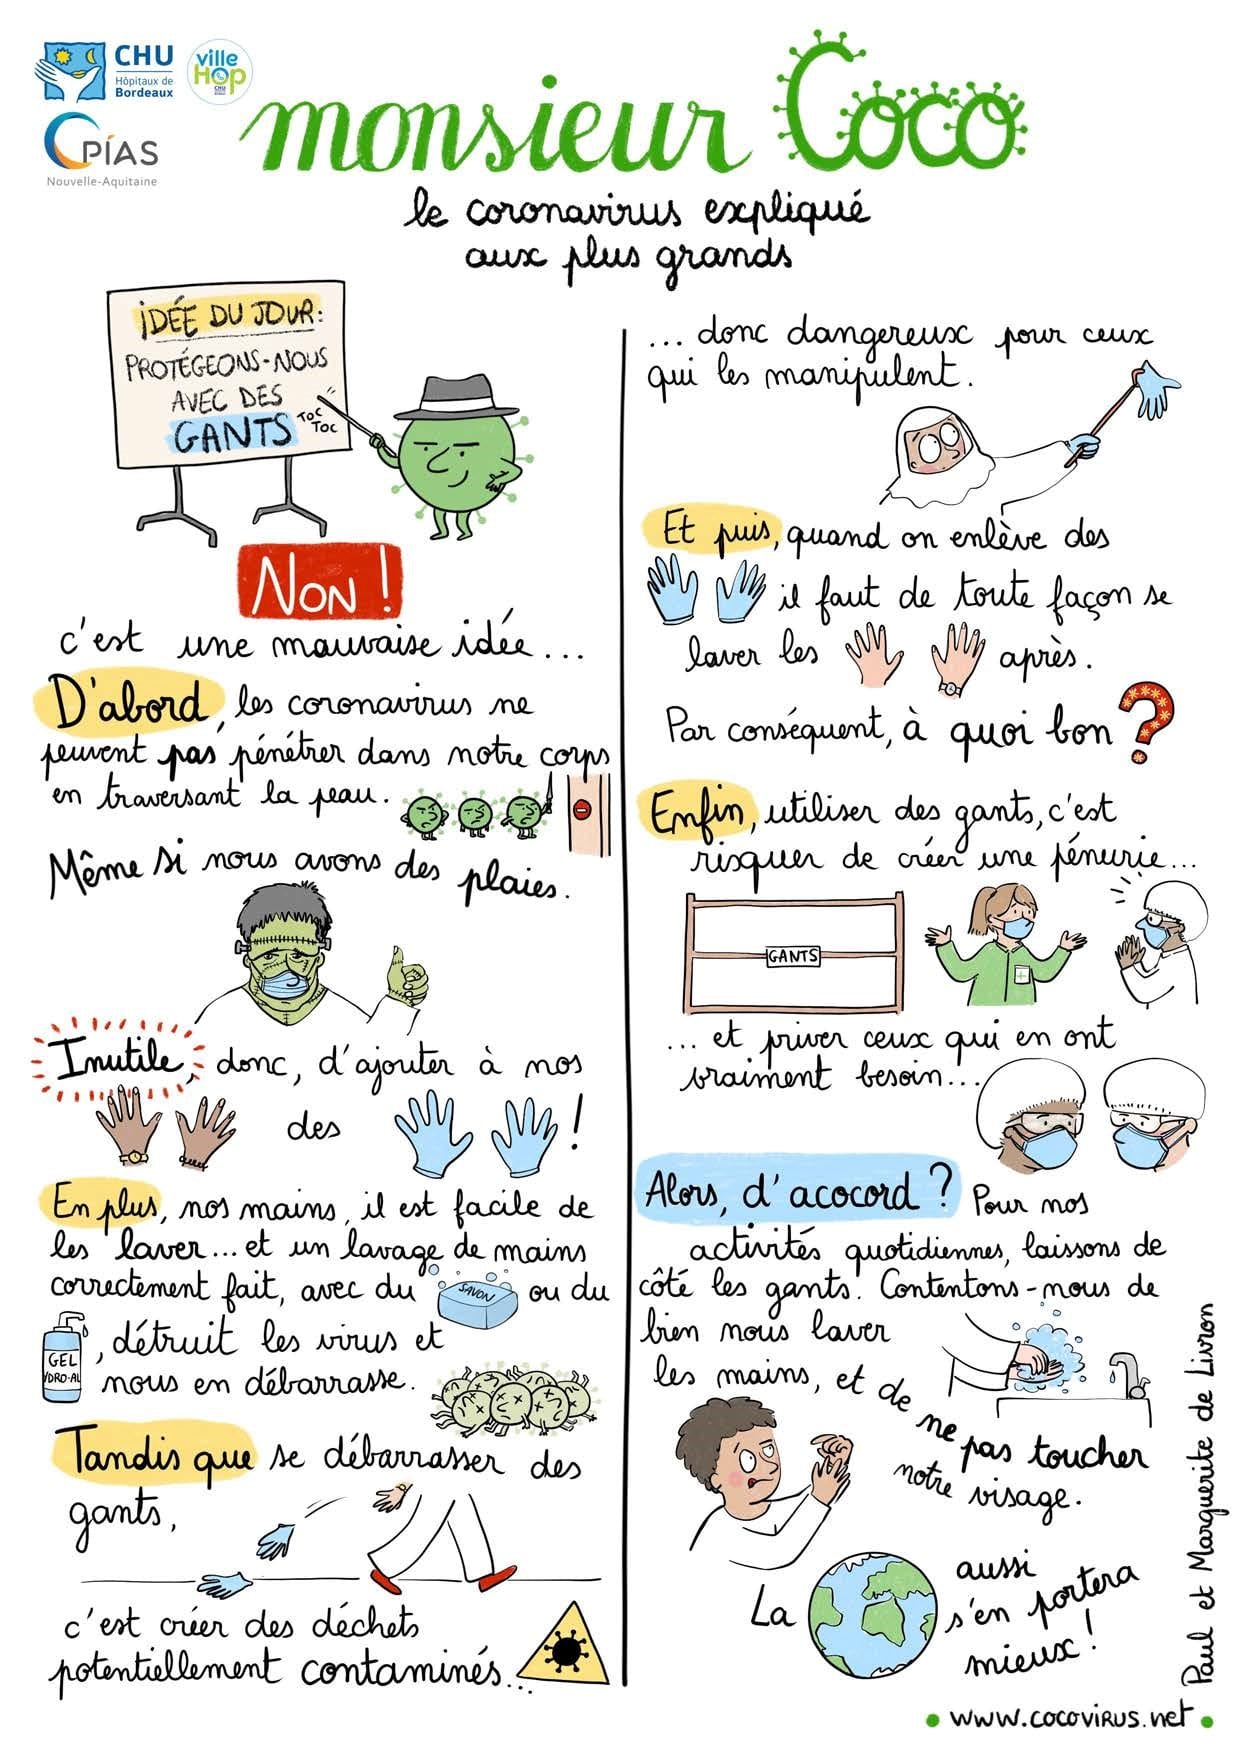 CHU
Hôpitaux de
Bordeaux
ville
HOP
CHU
CPIAS
Nouvelle-Aquitaine
monsieur Coco
le coronavirus expliqué
aux plus grands
IDÉE DU JOUR:
PROTÉGEONS-NOUS
AVEC DES
GANTS
TOC
TOC
NON !
c'est une mauvaise idée...
D'abord, les coronavirus ne
peuvent pas pénétrer dans notre corps
en traversant la peau.
Même si nous avons des plaies.
Inutile, donc, d'ajouter à nos
des !
En plus, nos mains, il est facile de
les laver... et un lavage de mains
correctement fait, avec du SAVON ou du
GEL
YDRO-AL
, détruit les virus et
nous en débarrasse.
Tandis que se débarrasser des
gants,
c'est créer des déchets
potentiellement contaminés...
... donc dangereux pour ceux
qui les manipulent.
Et puis, quand on enlève des
il faut de toute façon se
laver les après.
Par conséquent, à quoi bon ?
Enfin, utiliser des gants, c'est
risquer de créer une pénurie...
GANTS
... et priver ceux qui en ont
vraiment besoin...
Alors, d'acocord ? Pour nos
activités quotidiennes, laissons de
côté les gants. Contentons-nous de
bien nous laver
les mains, et de
ne pas toucher
notre visage.
La aussi
s'en portera
mieux !
Paul et Marguerite de Livron
• www.cocovirus.net •